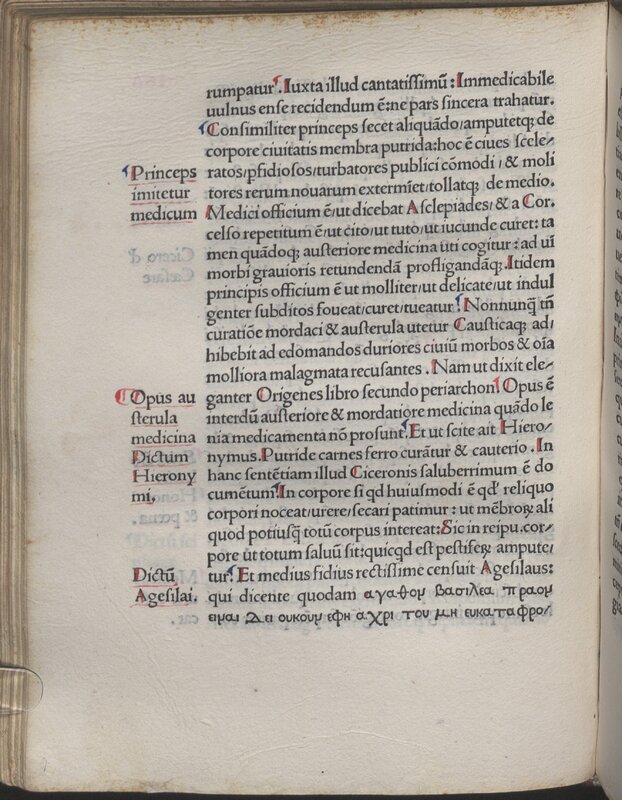 rumpatur. Iuxta illud cantatissimū: Immedicabile
uulnus ense recidendum ē: ne pars sincera trahatur.
Consimiliter princeps secet aliquādo/amputetqꝫ de
corpore ciuitatis membra putrida: hoc ē ciues scele/
ratos/pfidiosos/turbatores publici cōmodi/& moli
tores rerum nouarum extermīet/tollatqꝫ de medio.
Medici officium ē/ut dicebat Asclepiades/& a Cor.
celso repetitum ē/ut cito/ut tuto/ut iucunde curet: ta
men quādoqꝫ austeriore medicina uti cogitur: ad uī
morbi grauioris retundendā profligandāqꝫ. Itidem
principis officium ē ut molliter/ut delicate/ut indul
genter subditos foueat/curet/tueatur. Nonnunq̄ tn̄
curatiōe mordaci & austerula utetur Causticaqꝫ ad/
hibebit ad edomandos duriores ciuiū morbos & oīa
molliora malagmata recusantes. Nam ut dixit ele/
ganter Origenes libro secundo periarchon. Opus ē
interdū austeriore & mordatiore medicina quādo le
nia medicamenta nō prosunt. Et ut scite ait Hiero/
nymus. Putride carnes ferro curātur & cauterio. In
hanc sentētiam illud Ciceronis saluberrimum ē do
cumētum. In corpore si qd huiusmodi ē qd' reliquo
corpori noceat/urere/secari patimur: ut mēbroꝝ ali
quod potiusq̄ totū corpus intereat: Sic in reipu. cor/
pore ut totum saluū sit: quicqd est pestiferꝝ ampute/
tur. Et medius fidius rectissime censuit Agesilaus:
qui dicente quodam αγαθον βασιλεα πραον
ειναι Δει ουκουν εφη αχρι του μη ευκαταφρο/
Princeps
imitetur
medicum
Opus au
sterula
medicina
Dictum
Hierony
mi,
Dictū
Agesilai.